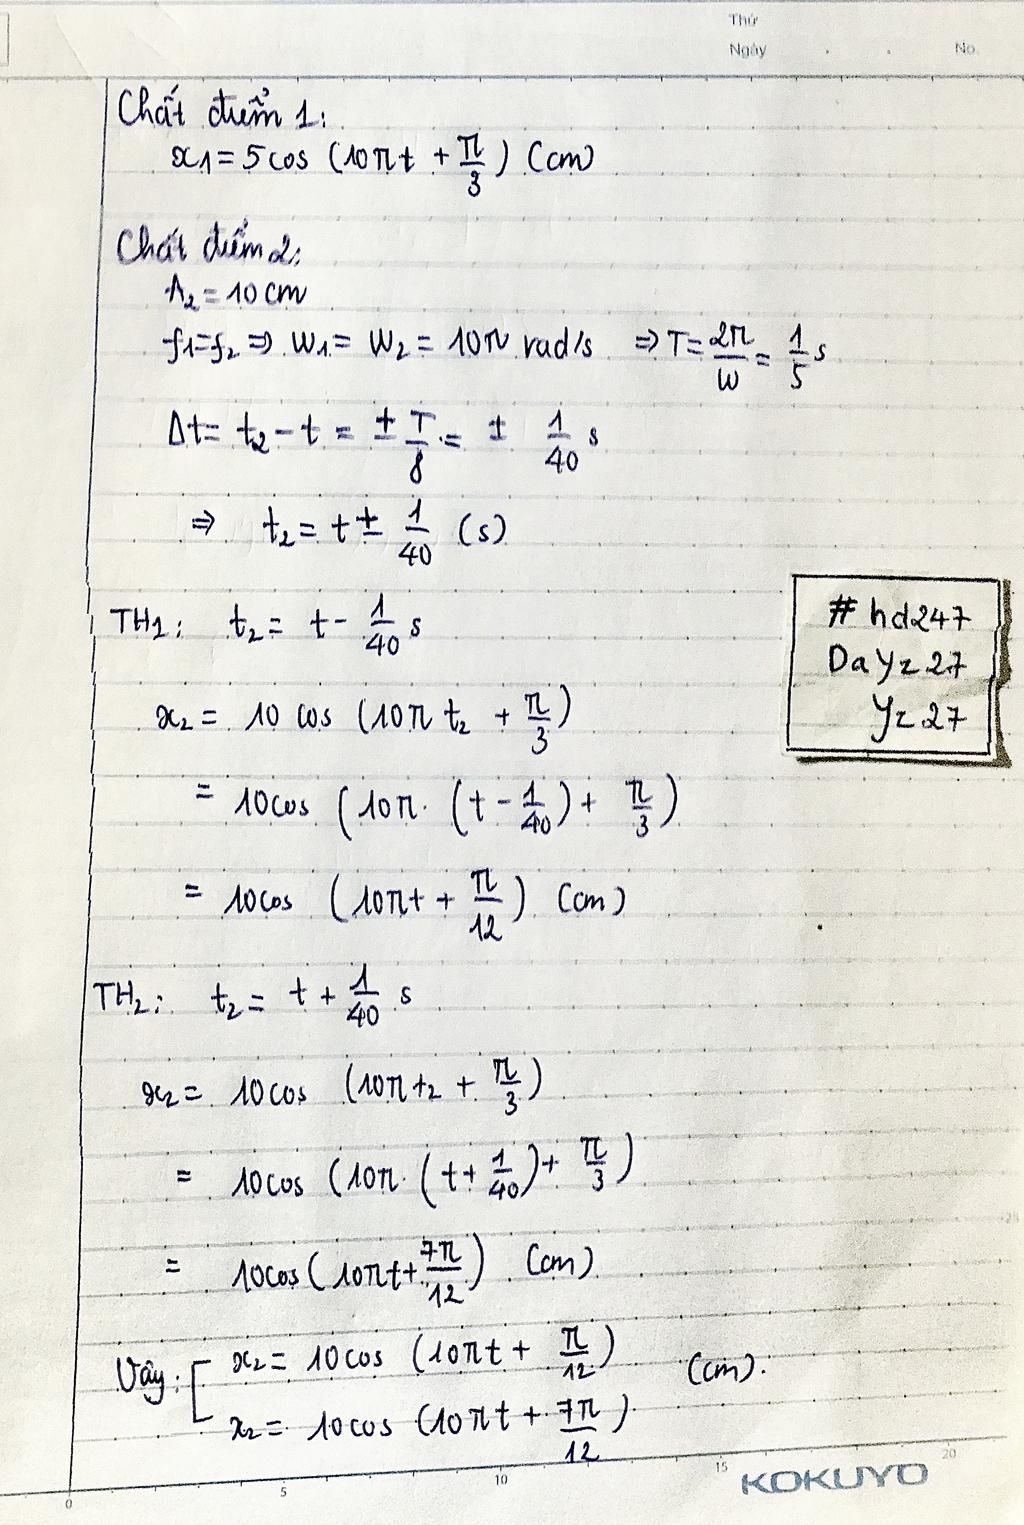 Thứ
Ngày . . No.
Chất điểm 1:
x₁ = 5cos (10πt + π/3) (cm)
Chất điểm 2:
A₂ = 10 cm
f₁=f₂ ⇒ W₁ = W₂ = 10π rad/s ⇒ T = 2π/W = 1/5 s
Δt = t₂ - t = ± T/8 = ± 1/40 s
⇒ t₂ = t ± 1/40 (s)
TH1: t₂ = t - 1/40 s
# hd247
DaYz27
Yz27
x₂ = 10 cos (10π t₂ + π/3)
= 10cos (10π. (t - 1/40) + π/3)
= 10cos (10πt + π/12) (cm)
TH₂: t₂ = t + 1/40 s
x₂ = 10cos (10πt₂ + π/3)
= 10cos (10π. (t + 1/40) + π/3)
= 10cos (10πt + 7π/12) (cm)
Vậy: [ x₂ = 10cos (10πt + π/12)
(cm).
x₂ = 10cos (10πt + 7π/12)
0 5 10 15 20
KOKUYO